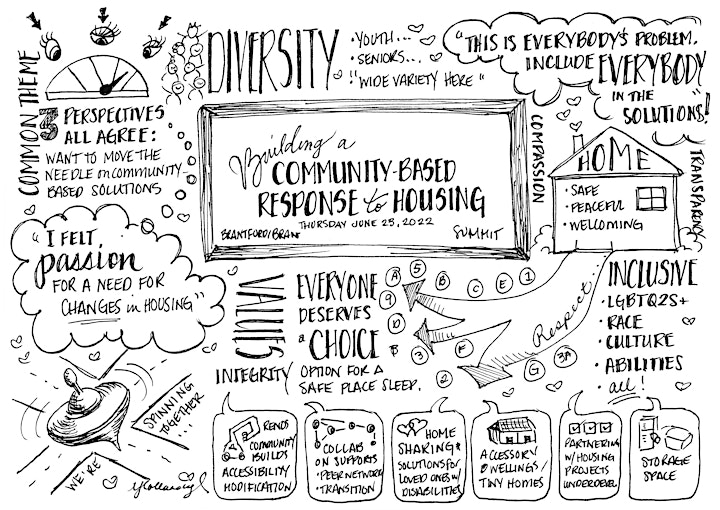 COMMON THEME
3 PERSPECTIVES
ALL AGREE:
WANT TO MOVE THE
NEEDLE on COMMUNITY-
BASED SOLUTIONS
DIVERSITY
• YOUTH...
• SENIORS...
"WIDE VARIETY HERE"
"THIS IS EVERYBODY'S PROBLEM.
INCLUDE EVERYBODY
IN THE
SOLUTIONS!"
Building a
COMMUNITY-BASED
RESPONSE to HOUSING
THURSDAY JUNE 23, 2022
BRANTFORD/BRANT
SUMMIT
COMPASSION
HOME
• SAFE
• PEACEFUL
• WELCOMING
TRANSPARENCY
"I FELT,
passion
FOR A NEED FOR
CHANGES in HOUSING"
VALUES
INTEGRITY
EVERYONE
DESERVES
a CHOICE
OPTION FOR A
SAFE PLACE SLEEP.
A 5 B C E 1
9
D
B 3 F
2 G 3A
Respect...
INCLUSIVE
• LGBTQ2S+
• RACE
• CULTURE
• ABILITIES
• all!
WE'RE
SPINNING
TOGETHER
...
RENOS
COMMUNITY
BUILDS
ACCESSIBILITY
MODIFICATION
COLLAB
ON SUPPORTS
• PEER NETWORK
• TRANSITION
HOME
SHARING
SOLUTIONS for
LOVED ONES w/
DISABILITIES
ACCESSORY
DWELLINGS/
TINY HOMES
PARTNERING
W/ HOUSING
PROJECTS
UNDERDEVEL
STORAGE
SPACE